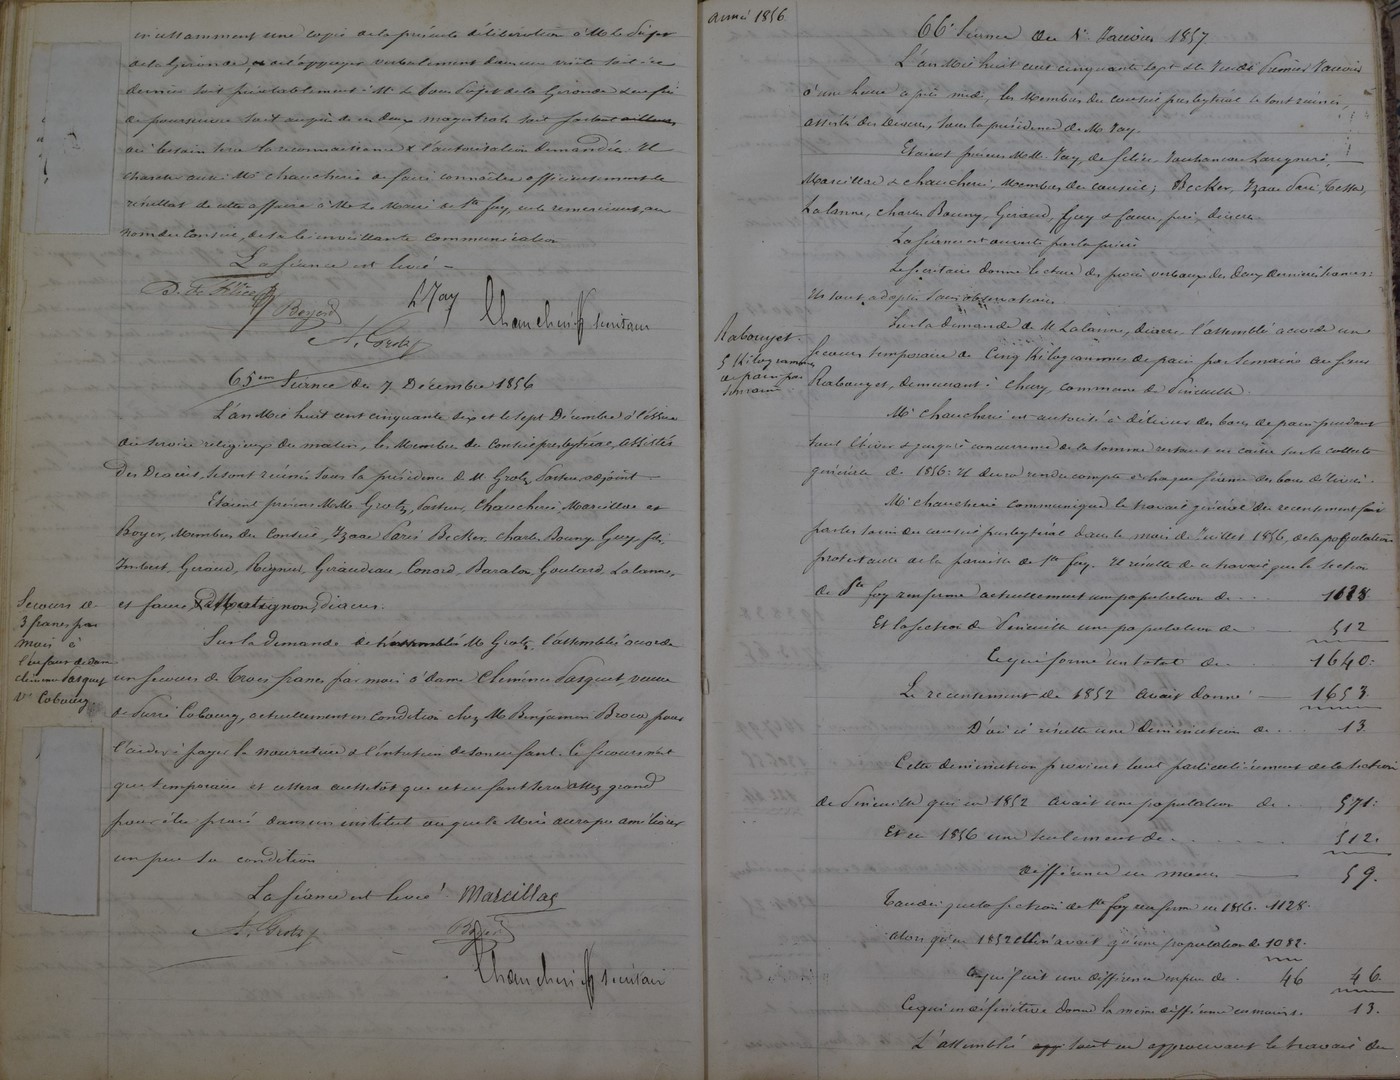 incessamment une copie de la présente délibération à M. le Préfet
de la Gironde, et de l'appuyer verbalement dans une visite soit à ce
dernier soit préalablement à Mr le Sous Préfet de la Gironde
de poursuivre soit auprès de ces deux magistrats soit partout ailleurs
au besoin la reconnaissance & l'autorisation demandées. Il
charge aussi Mr Chaucherie de faire connaître officieusement le
résultat de cette affaire à Mr Le Maire de Ste foy, en le remerciant, au
nom du Conseil, de sa bienveillante communication
La séance est levée
Boyer
L Jay
Chaucherie secrétaire
A. Grotz
65eme Séance du 7 Décembre 1856
L'an Mil huit cent cinquante six et le sept Décembre à l'issue
du service religieux du matin, les Membres du Conseil presbytéral, assistés
des Diacres, se sont réunis sous la présidence de M Grotz Pasteur adjoint
Etaient présents MM Grotz, Pasteur, Chaucherie, Marcillac et
Boyer, Membres du Conseil, Izaac Paris Becker, Charles Bouny, Guy, fils,
Imbert, Geraud, Reynier, Giraudeau, Conord, Goulard, Lalanne,
et faure diacres.
Secours de
3 francs par
mois à
l'enfant de dame
clémence Pasquet
Ve Cobourg
Sur la demande de M. Grotz, l'assemblée accorde
un secours de Trois francs par mois à dame Clémence Pasquet, veuve
de Pierre Cobourg, actuellement en condition chez M. Benjamin Broca, pour
l'aider à payer la nourriture & l'entretien de son enfant. Ce secours n'est
que temporaire et cessera aussitôt que cet enfant sera assez grand
pour être placé dans un institut ou que la Mère aura pu améliorer
un peu sa condition
La séance est levée Marcillac
A. Grotz
Boyer
Chaucherie secrétaire
année 1856
66e Séance du 1er Janvier 1857
L'an Mil huit cent cinquante sept & le Jeudi Premier Janvier
à une heure après midi, les Membres du conseil presbytéral se sont réunis,
assistés des Diacres, sous la présidence de M Jay.
Etaient présents MM. Jay, de félice,
Marcillac & Chaucherie, Membres du Conseil; Becker, Izaac Paris,
Lalanne, Charles Bouny, Geraud, Guy & faure, père, diacres
La séance est ouverte par la prière
Le secrétaire donne lecture des procès verbaux des deux dernières séances:
Ils sont adoptés sans observations.
Rabouyet.
5 Kilogrammes
de pain par
semaine
Sur la demande de M Lalanne, diacre, l'assemblée accorde un
secours temporaire de Cinq Kilogrammes de pain par semaine au sieur
Rabouyet, demeurant à commune de Pineuilh.
Mr Chaucherie est autorisé à délivrer des bons de pain pendant
tout l'hiver & jusqu'à concurrence de la somme restant en caisse sur la collecte
générale de 1856. Il devra rendre compte à chaque séance des bons délivrés.
Mr Chaucherie communique le travail général du recensement fait
par les soins du conseil presbytéral dans le mois de Juillet 1856, de la population
protestante de la paroisse de Ste foy. Il résulte de ce travail que la section
de Ste foy renferme actuellement une population de 1128
Et la section de Pineuilh une population de 512
Ce qui forme un total de 1640.
Le recensement de 1852 avait donné 1653
D'où il résulte une diminution de 13
Cette diminution provient tout particulièrement de la section
de Pineuilh qui en 1852 avait une population de 571.
Et en 1856 une seulement de 512.
différence en moins 59.
Tandis que la section de Ste foy renferme en 1856. 1128.
alors qu'en 1852 elle n'avait qu'une population de 1082.
Ce qui fait une différence en plus de 46 46.
Ce qui en définitive donne la même différence en moins. 13.
L'assemblée tout en approuvant le travail du